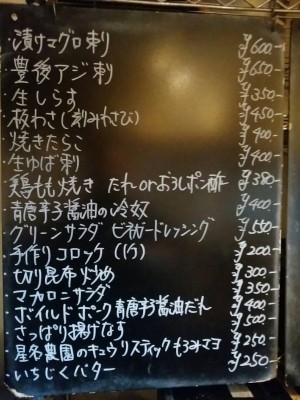 ・漬けマグロ刺 ¥600-
・豊後アジ刺 ¥650-
・生しらす ¥350-
・板わさ(刻みわさび) ¥450-
・焼きたらこ ¥400-
・生ゆば刺 ¥400-
・鶏もも焼き たれorおろしポン酢 ¥380
・青唐辛子醤油の冷奴 ¥400-
・グリーンサラダ ビネガードレッシング ¥550-
・手作りコロッケ(1ヶ) ¥200-
・切り昆布炒め ¥300-
・マカロニサラダ ¥350-
・ボイルドポーク青唐辛子醤油だれ ¥400-
・さっぱり揚げなす ¥500-
・星名農園のキュウリスティックもろみマヨ ¥250-
・いちじくバター ¥250-